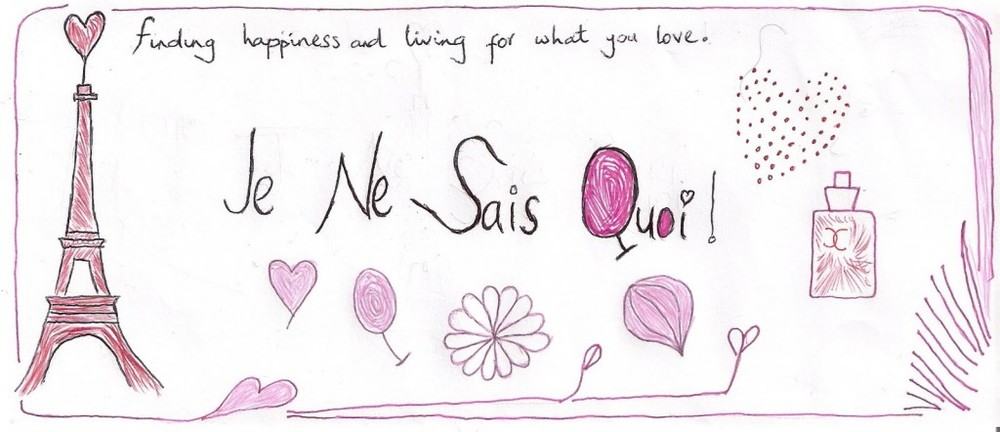 Finding happiness and living for what you love.
Je Ne Sais Quoi!